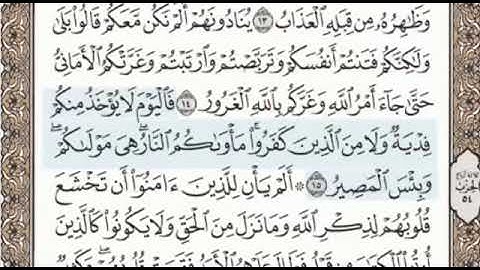 وَظَٰهِرُهُۥ مِن قِبَلِهِ ٱلْعَذَابُ ١٣ يُنَادُونَهُمْ أَلَمْ نَكُن مَّعَكُمْ قَالُوا۟ بَلَىٰ
وَلَٰكِنَّكُمْ فَتَنتُمْ أَنفُسَكُمْ وَتَرَبَّصْتُمْ وَٱرْتَبْتُمْ وَغَرَّتْكُمُ ٱلْأَمَانِىُّ
حَتَّىٰ جَآءَ أَمْرُ ٱللَّهِ وَغَرَّكُم بِٱللَّهِ ٱلْغَرُورُ ١٤ فَٱلْيَوْمَ لَا يُؤْخَذُ مِنكُمْ
فِدْيَةٌ وَلَا مِنَ ٱلَّذِينَ كَفَرُوا۟ ۚ مَأْوَىٰكُمُ ٱلنَّارُ ۖ هِىَ مَوْلَىٰكُمْ ۖ
وَبِئْسَ ٱلْمَصِيرُ ١٥ ۞ أَلَمْ يَأْنِ لِلَّذِينَ ءَامَنُوٓا۟ أَن تَخْشَعَ
قُلُوبُهُمْ لِذِكْرِ ٱللَّهِ وَمَا نَزَلَ مِنَ ٱلْحَقِّ وَلَا يَكُونُوا۟ كَٱلَّذِينَ
الحزب
٥٤